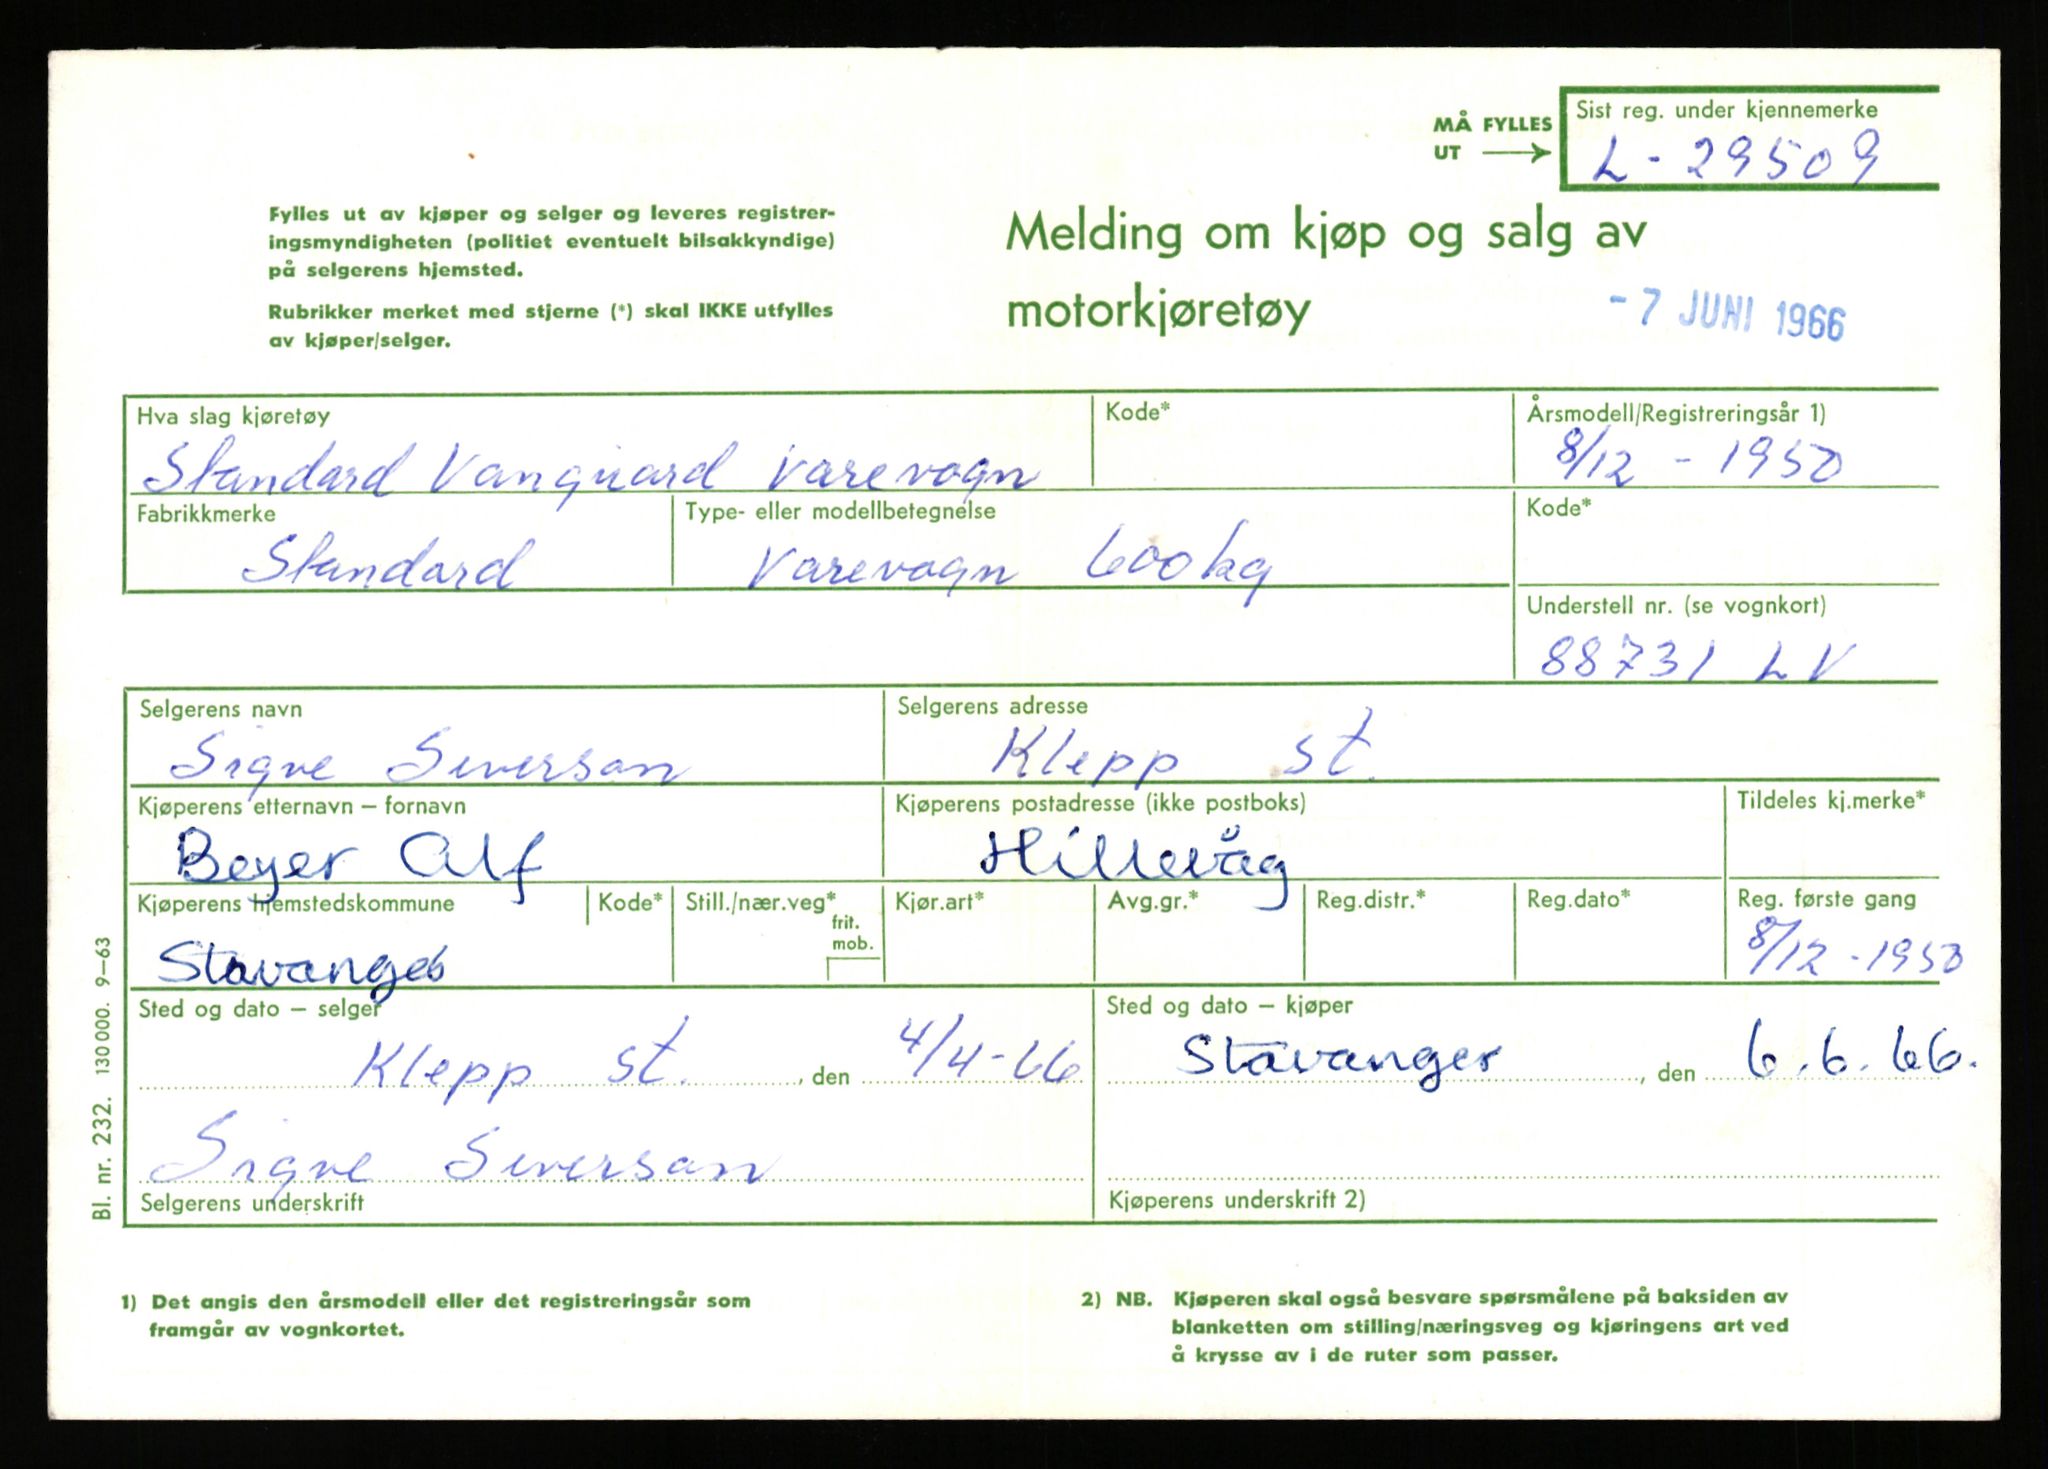 MÅ FYLLES UT
Sist reg. under kjennemerke
L - 29509
Fylles ut av kjøper og selger og leveres registrer-
ingsmyndigheten (politiet eventuelt bilsakkyndige)
på selgerens hjemsted.
Rubrikker merket med stjerne (*) skal IKKE utfylles
av kjøper/selger.
Melding om kjøp og salg av
motorkjøretøy
- 7 JUNI 1966
Hva slag kjøretøy
Standard Vanguard Varevogn
Kode*
Årsmodell/Registreringsår 1)
8/12 - 1950
Fabrikkmerke
Standard
Type- eller modellbetegnelse
Varevogn 600 kg
Kode*
Understell nr. (se vognkort)
88731 LV
Selgerens navn
Signe Seversan
Selgerens adresse
Klepp st.
Kjøperens etternavn – fornavn
Beyer Alf
Kjøperens postadresse (ikke postboks)
Hillevåg
Tildeles kj.merke*
Kjøperens hjemstedskommune
Stavanger
Kode*
Still./nær.veg*
frit.
mob.
Kjør.art*
Avg.gr.*
Reg.distr.*
Reg.dato*
Reg. første gang
8/12 - 1950
Sted og dato – selger
Klepp st. , den 4/4-66
Sted og dato – kjøper
Stavanger , den 6.6.66.
Signe Seversan
Selgerens underskrift
Kjøperens underskrift 2)
Bl. nr. 232. 130 000. 9–63
1) Det angis den årsmodell eller det registreringsår som
framgår av vognkortet.
2) NB. Kjøperen skal også besvare spørsmålene på baksiden av
blanketten om stilling/næringsveg og kjøringens art ved
å krysse av i de ruter som passer.